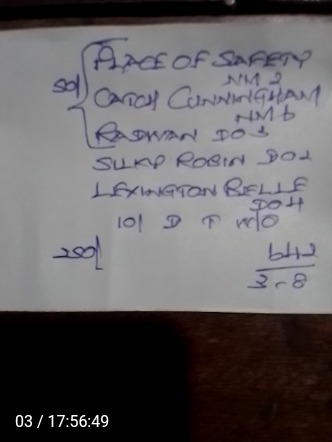 PLACE OF SAFETY
NM 2
50/ CATCH CUNNINGHAM
NM 6
RADWAN DO 3
SILKY ROBIN DO 2
LEXINGTON BELLE
DO 4
10/ D T W/O
250/ 642
3-8
03 / 17:56:49